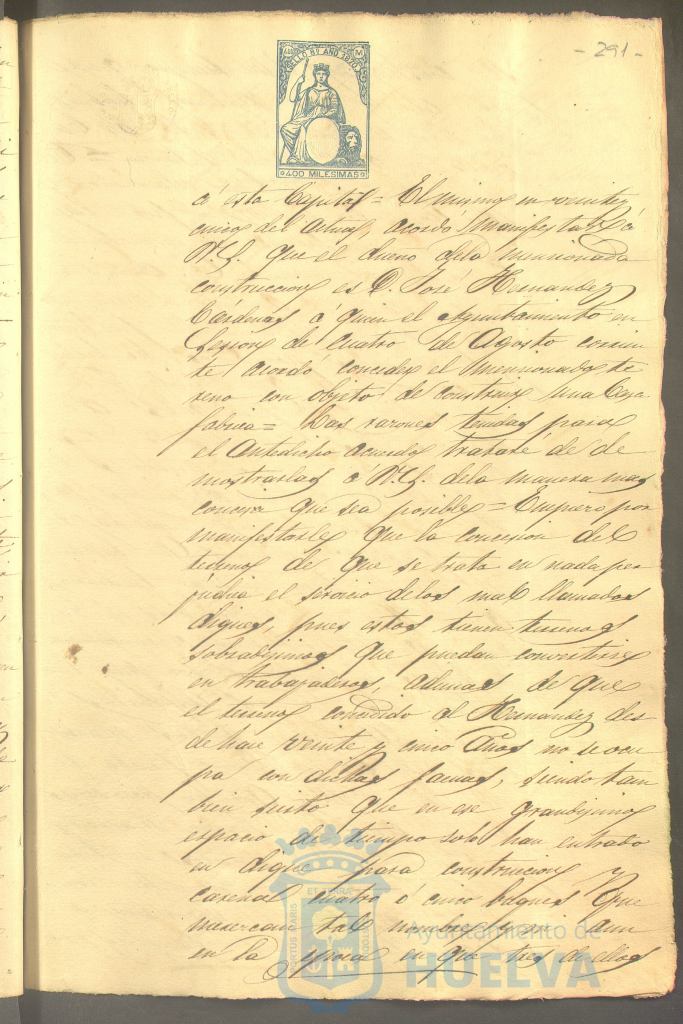 - 291 -
SELLO 8º AÑO 1870
400 M
400 MILESIMAS
á esta Capital = El mismo en veinte y
cinco del actual, acordó manifestar á
V.S. que el dueño dela mencionada
construccion es D. José Hernandez
Cárdenas á quien el Ayuntamiento en
Sesion de cuatro de Agosto corrien
te acordó conceder el mencionado te
reno con objeto de construir una Casa
fabrica = Las razones tenidas para
el antedicho acuerdo trataré de de
mostrarlas á V.S. dela manera mas
concisa que sea posible = Empiezo por
manifestarle que la concesion del
terreno de que se trata en nada per
judica el servicio delos mal llamados
diques, pues estos tienen terrenos
sobradisimos que puedan convertirse
en trabajaderos, ademas de que
el terreno concedido al Hernandez des
de hace veinte y cinco años no se ocu
pa con dichas faenas, siendo tam
bien cierto que en ese grandisimo
espacio de tiempo solo han entrado
en dique para construccion y
carenar cuatro ó cinco buques que
merezcan tal nombre, aun
en la epoca en que tres de ellos
PORTUS MARIS ET TERRÆ CUSTODIA
Ayuntamiento de
HUELVA